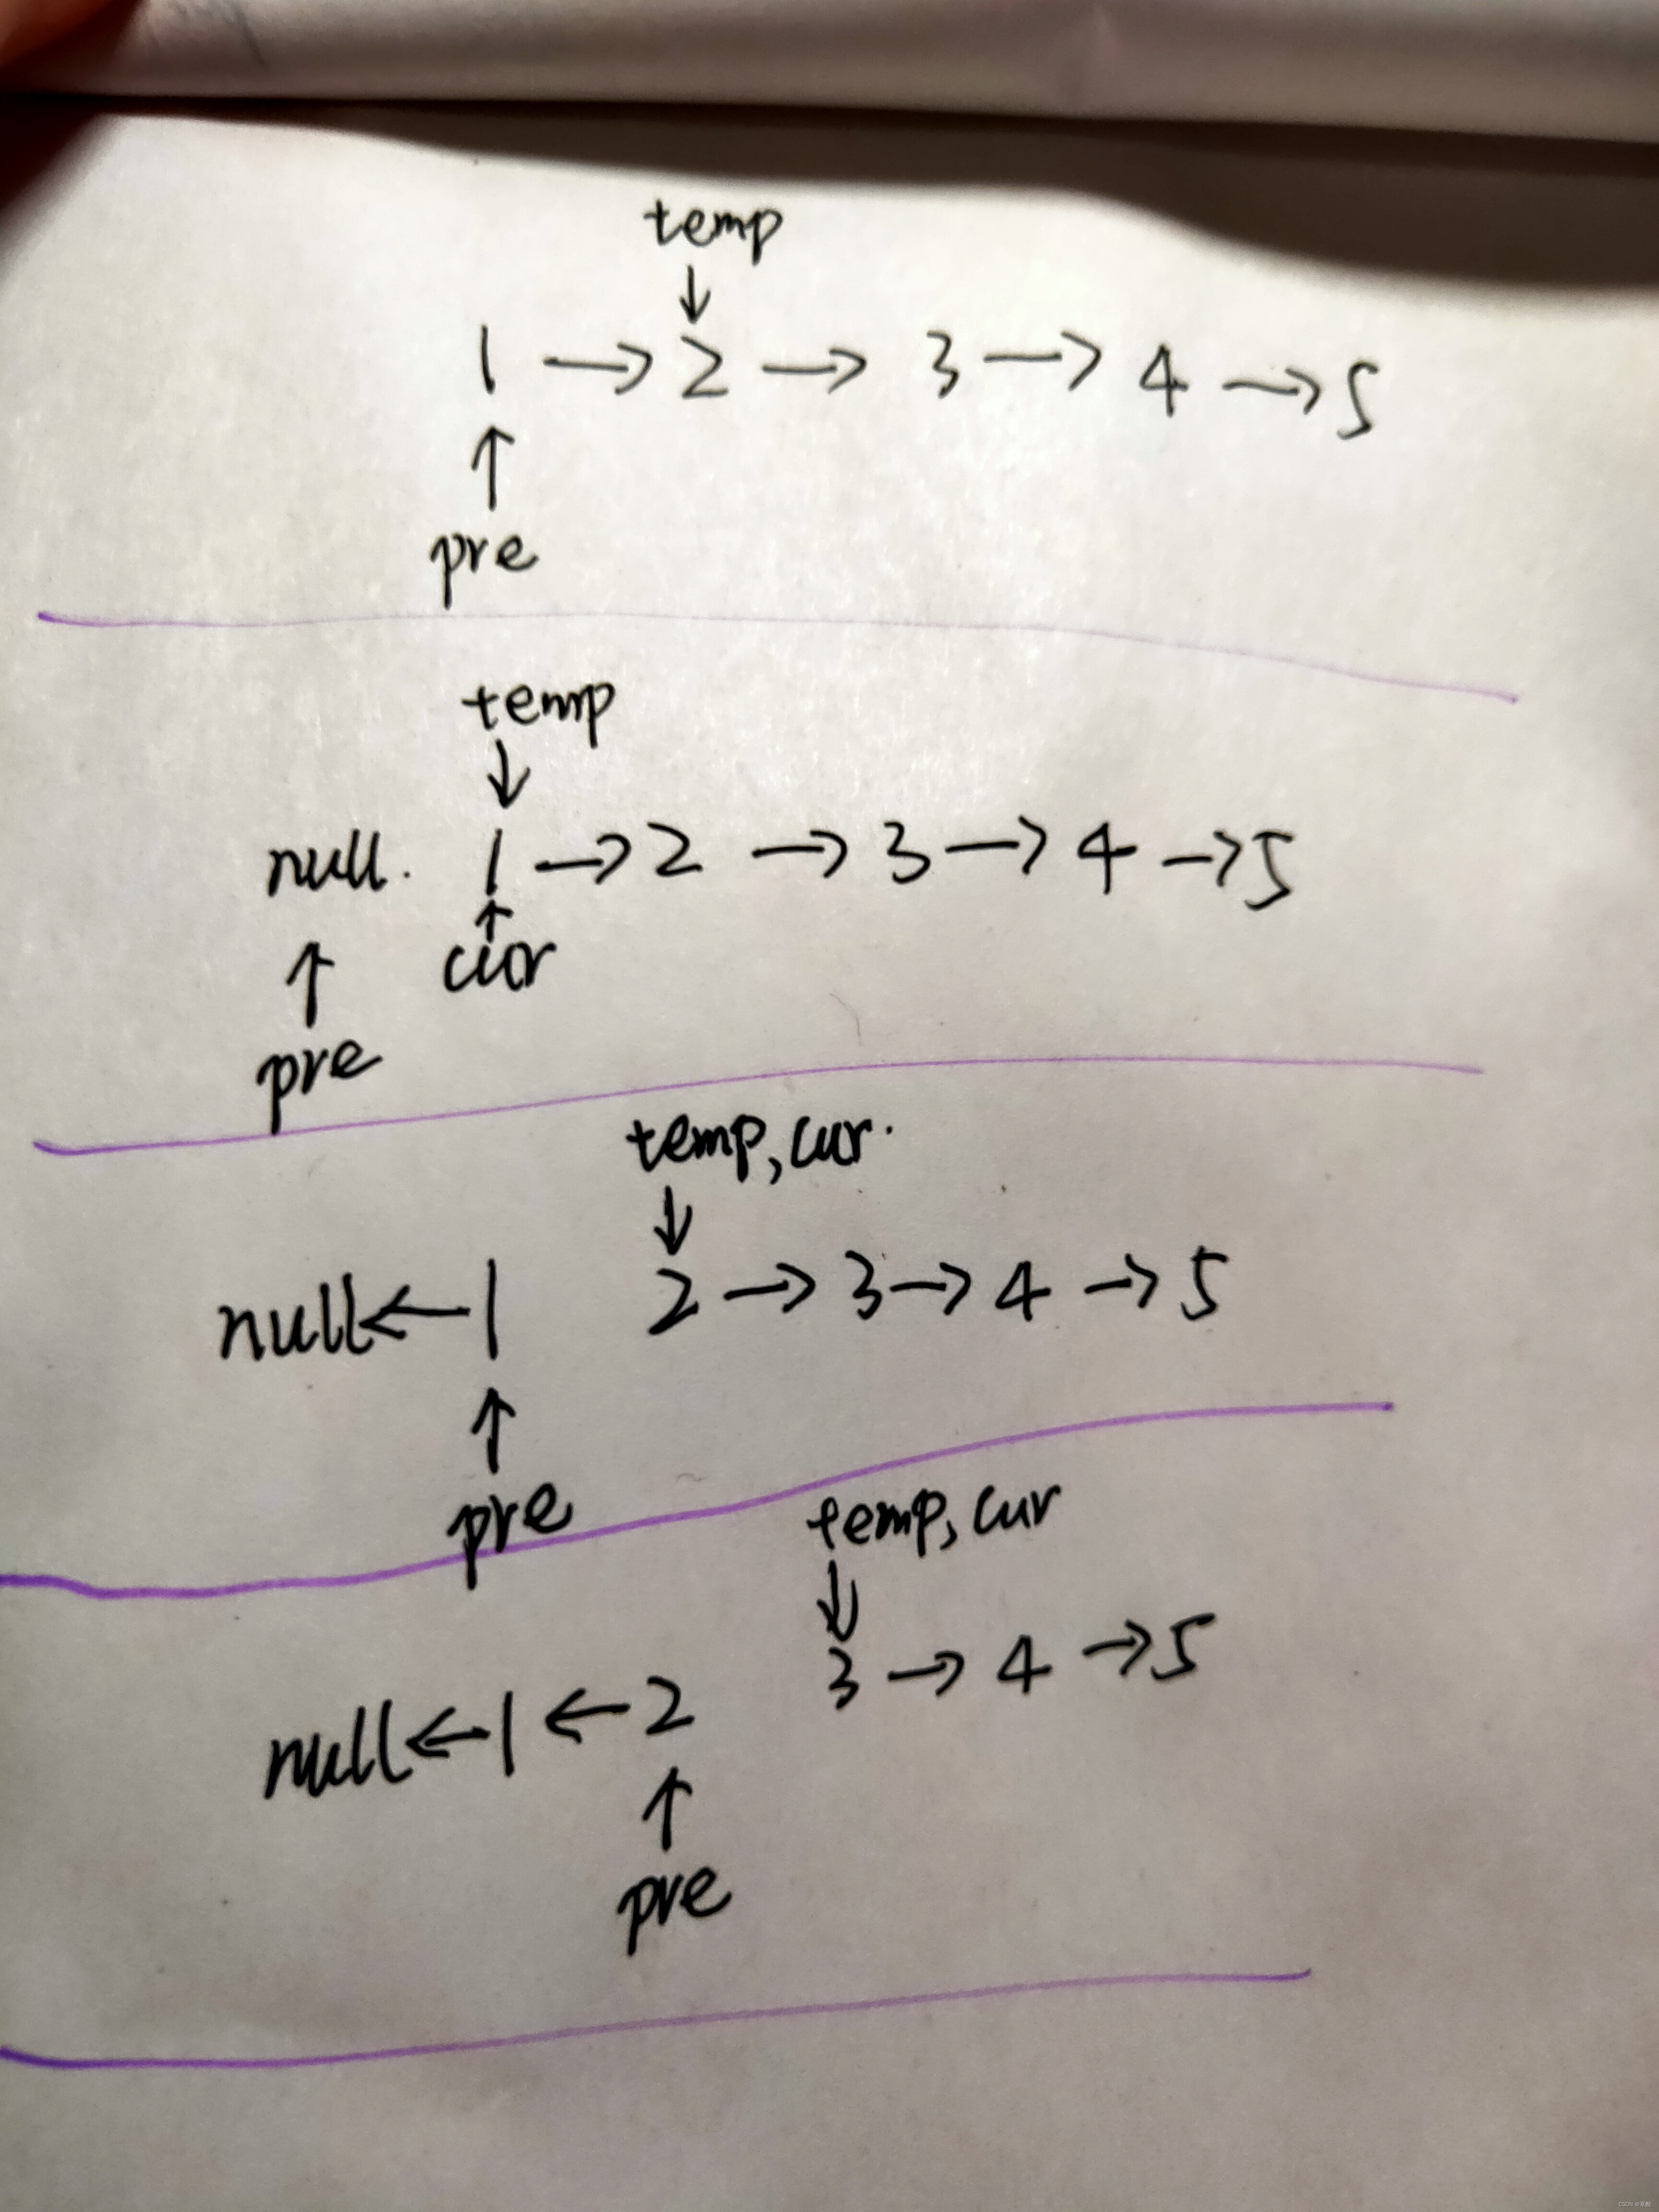 temp
↓
1 → 2 → 3 → 4 → 5
↑
pre
temp
↓
null. 1 → 2 → 3 → 4 → 5
↑ cur
pre
temp, cur.
↓
null ← 1 2 → 3 → 4 → 5
↑
pre
temp, cur
↓
3 → 4 → 5
null ← 1 ← 2
↑
pre